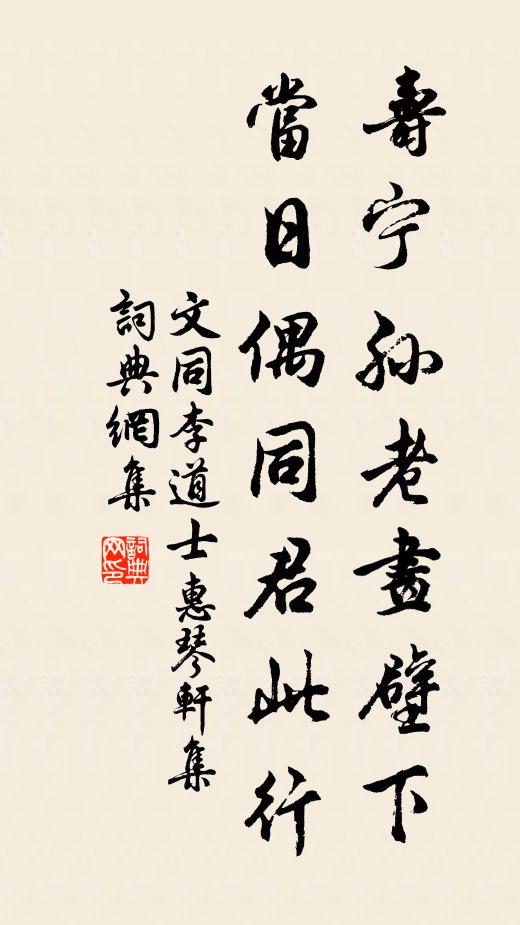 壽宁孫老畫壁下
當日偶同君此行
文同李道士惠琴軒集
詞典網集
詞典网印